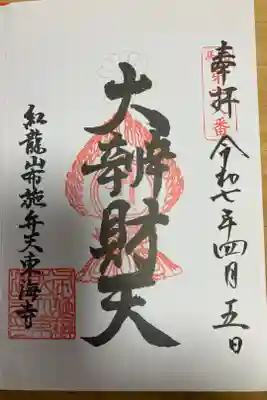 奉拝
令和七年四月五日
大辨財天
紅龍山布施弁天東海寺